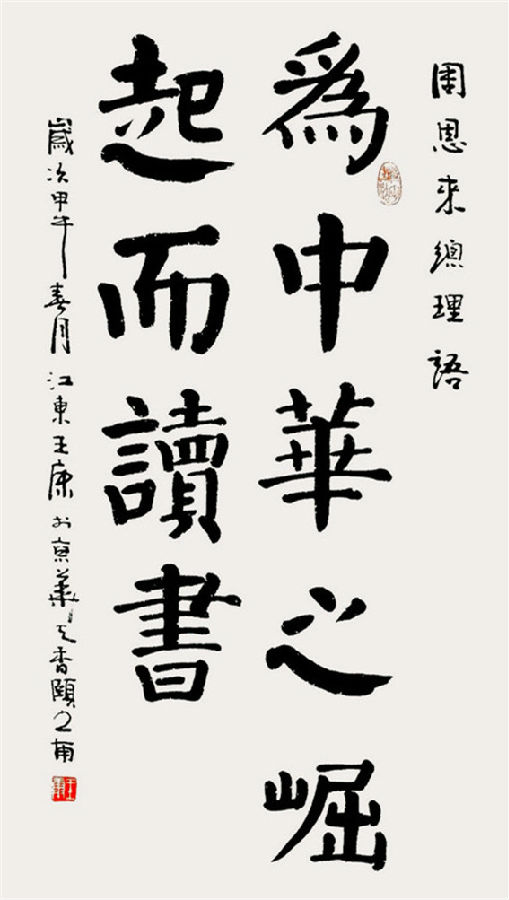 周恩来總理語
為中華之崛
起而讀書
歲次甲午春月江東王康於京華天香頤之南
王康